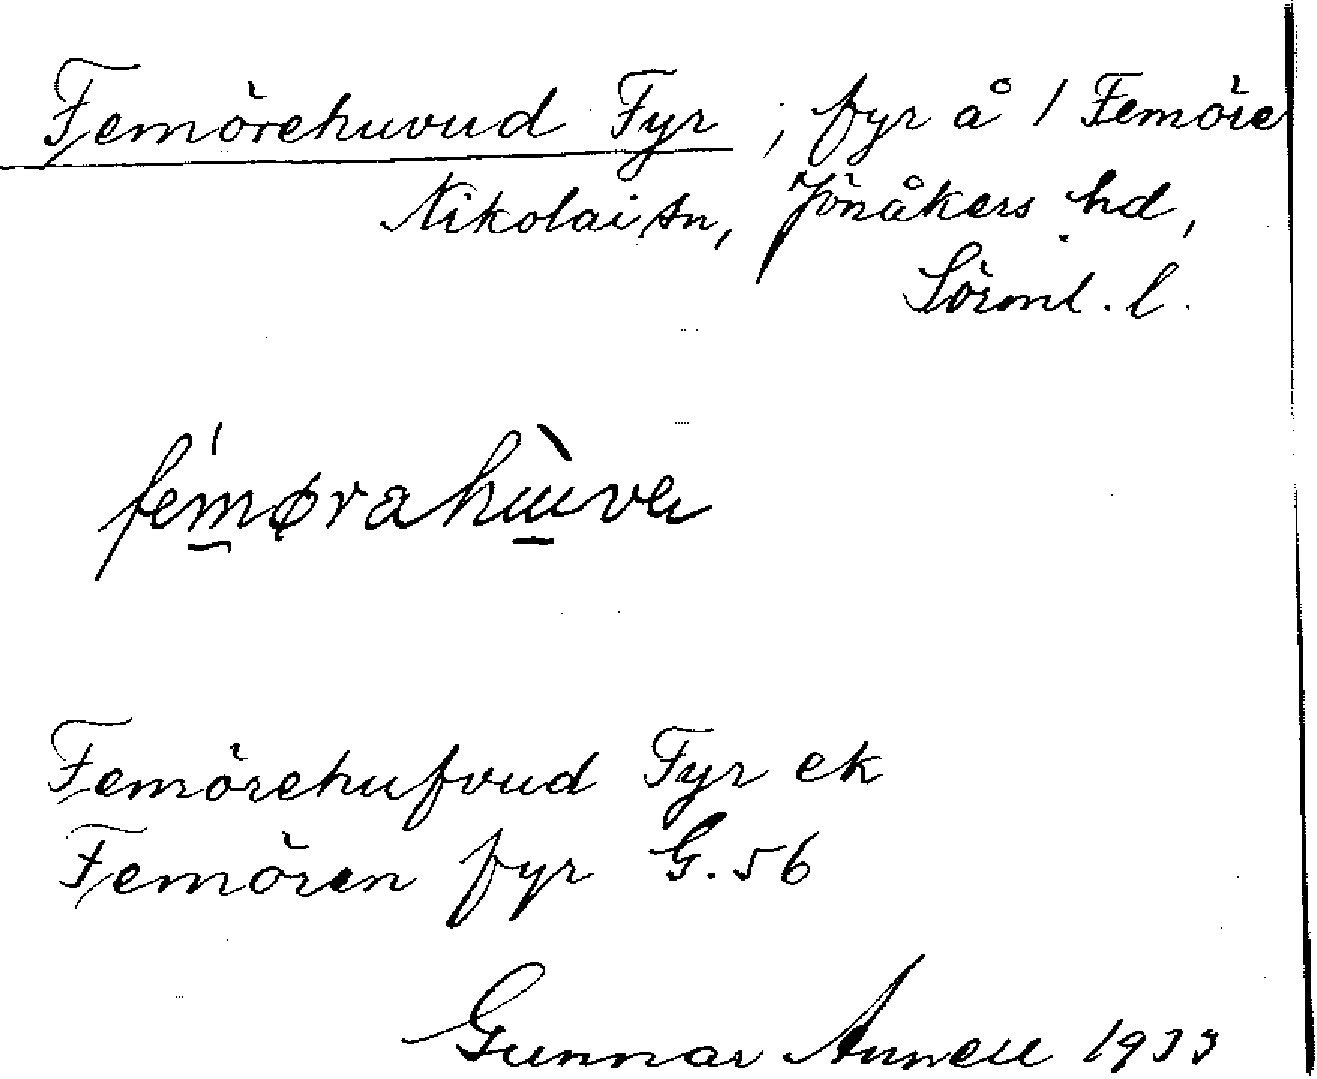 Femörehuvud Fyr ; fyr å / Femöre
Nikolai sn, Jönåkers hd,
Sörml. l.
femørahuvu
Femörehufvud Fyr ek
Femören fyr G. 56
Gunnar Annell 1933